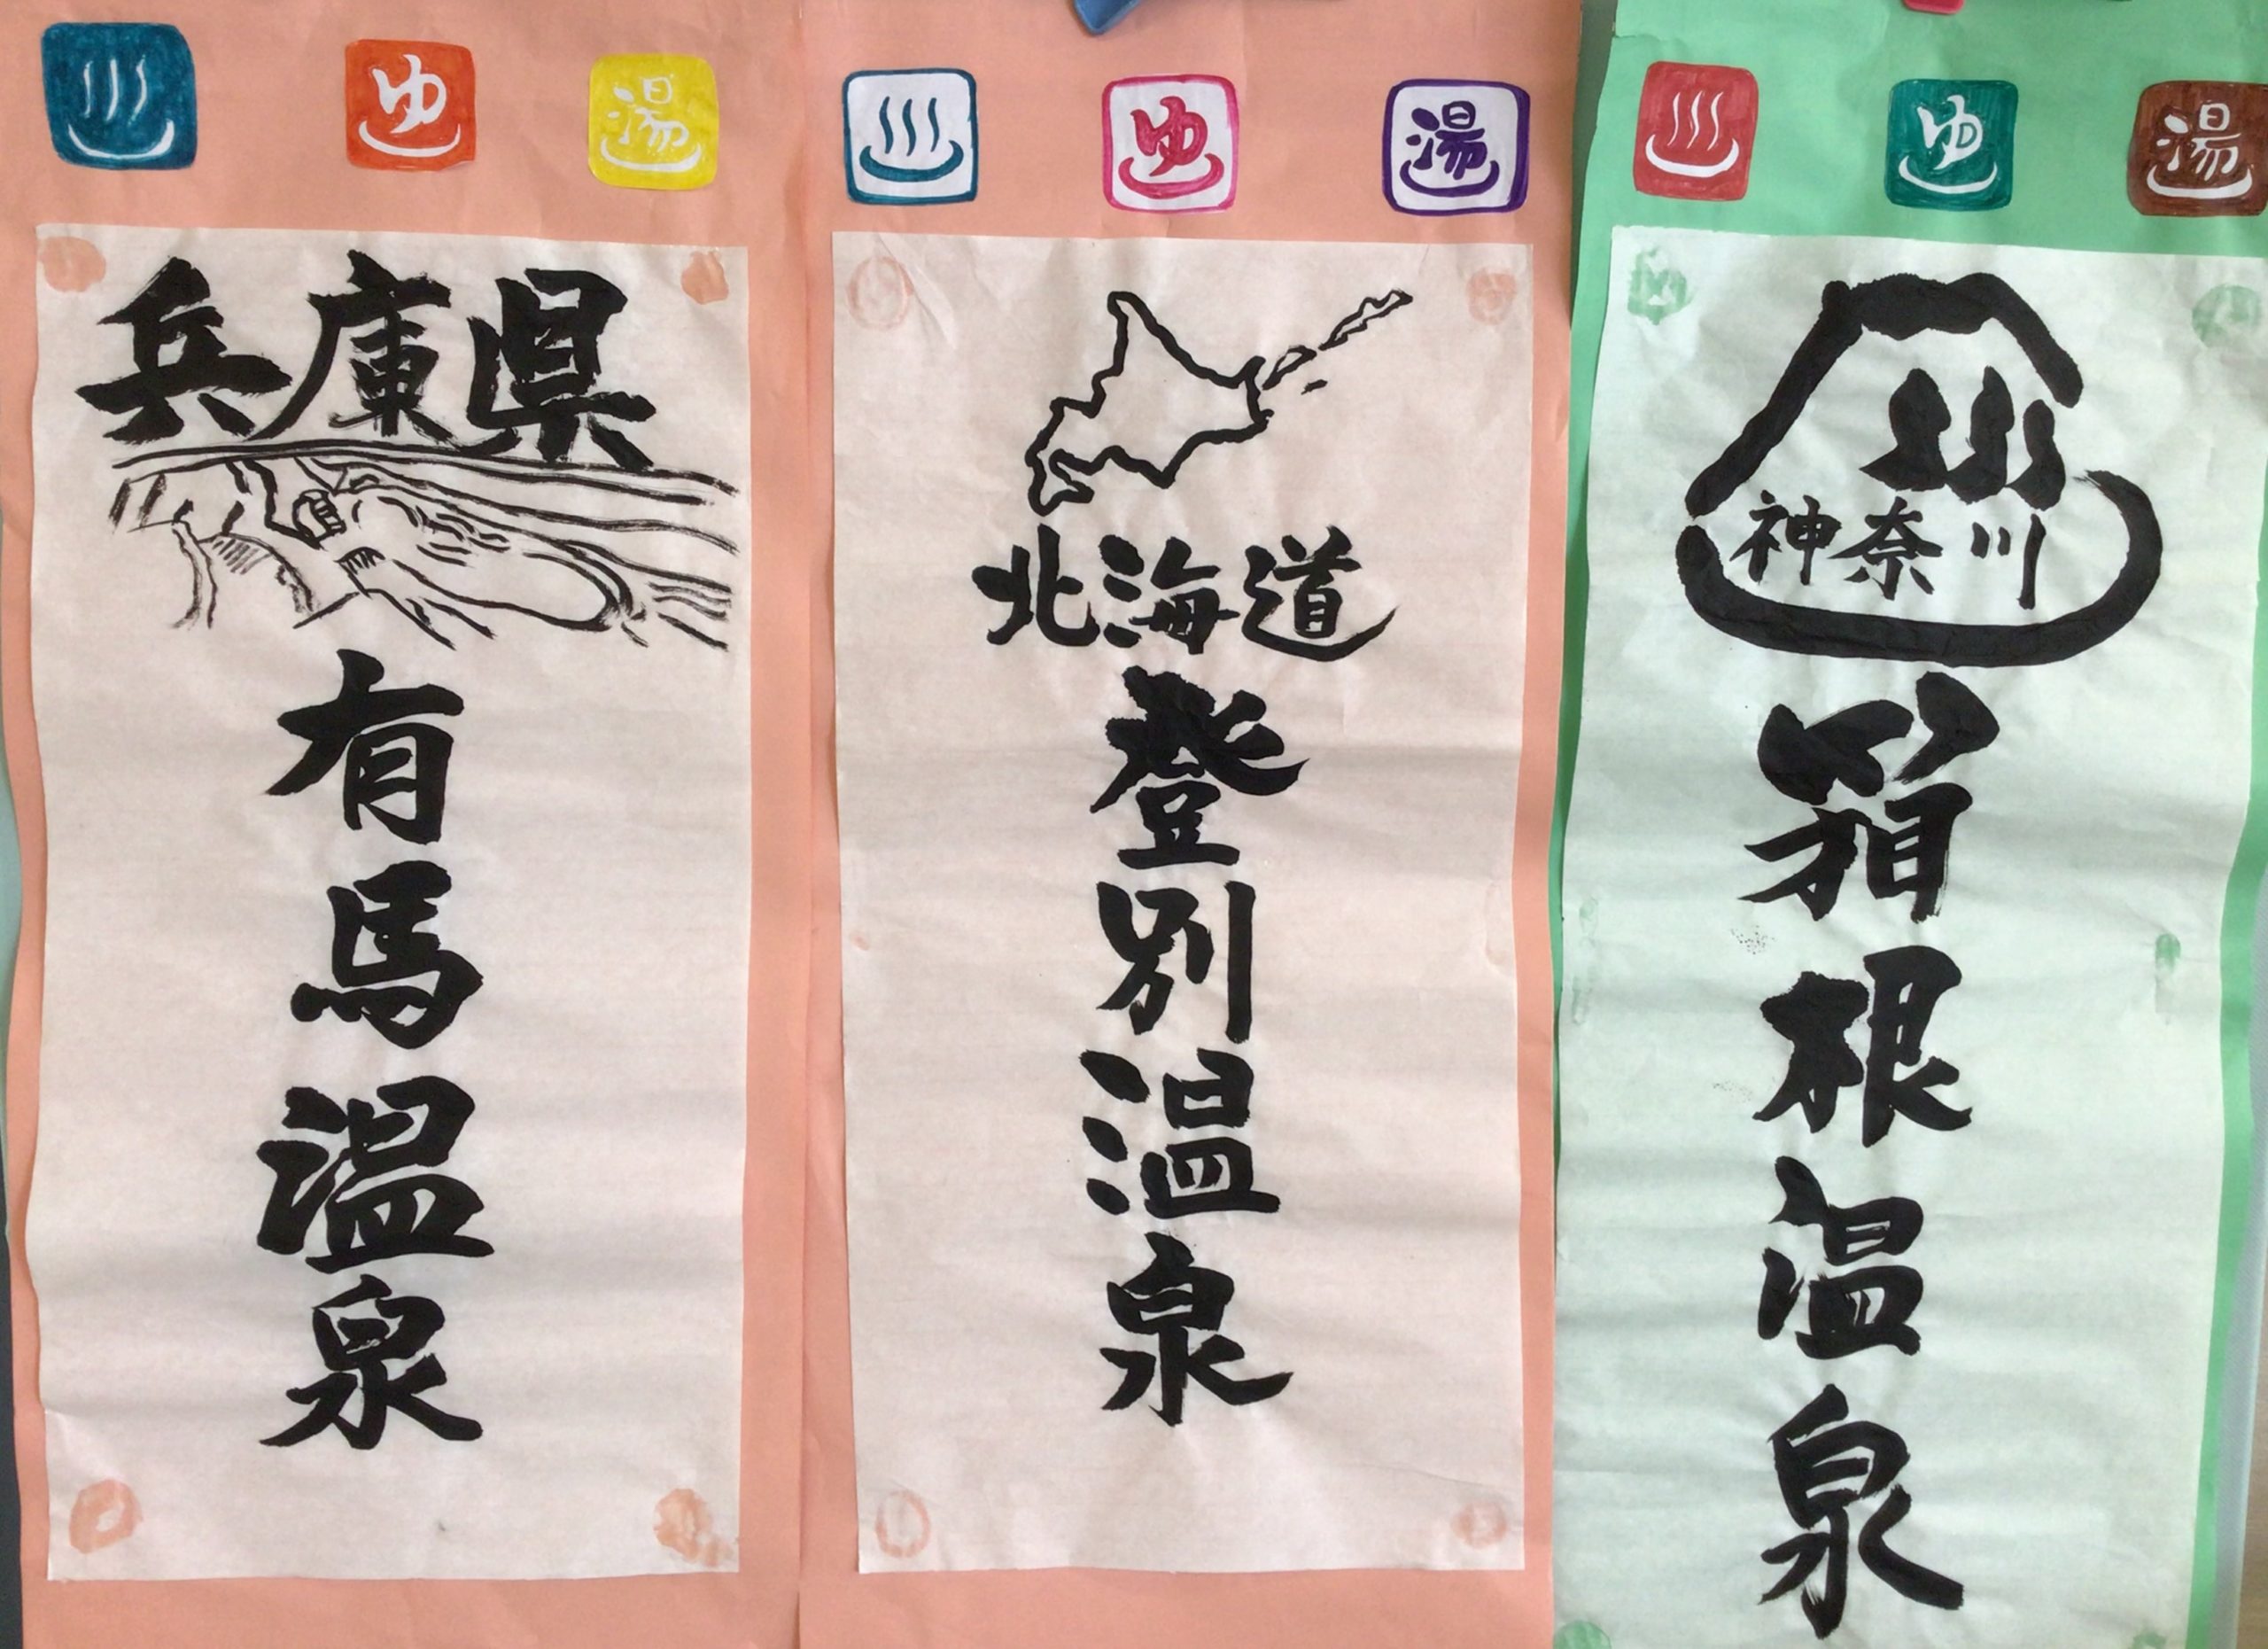 ゆ
湯
兵庫県
有馬温泉
ゆ
湯
北海道
登別温泉
ゆ
湯
神奈川
箱根温泉